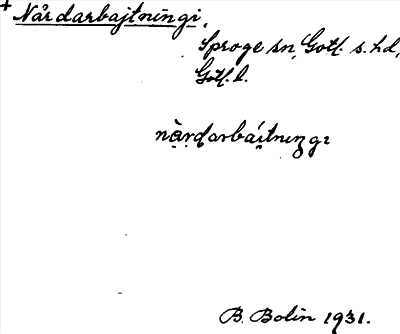 + Når darbajtningi,
Sproge sn, Gotl. s. hd,
Gotl. l.
nàrdarbáitningı
B. Bolin 1931.